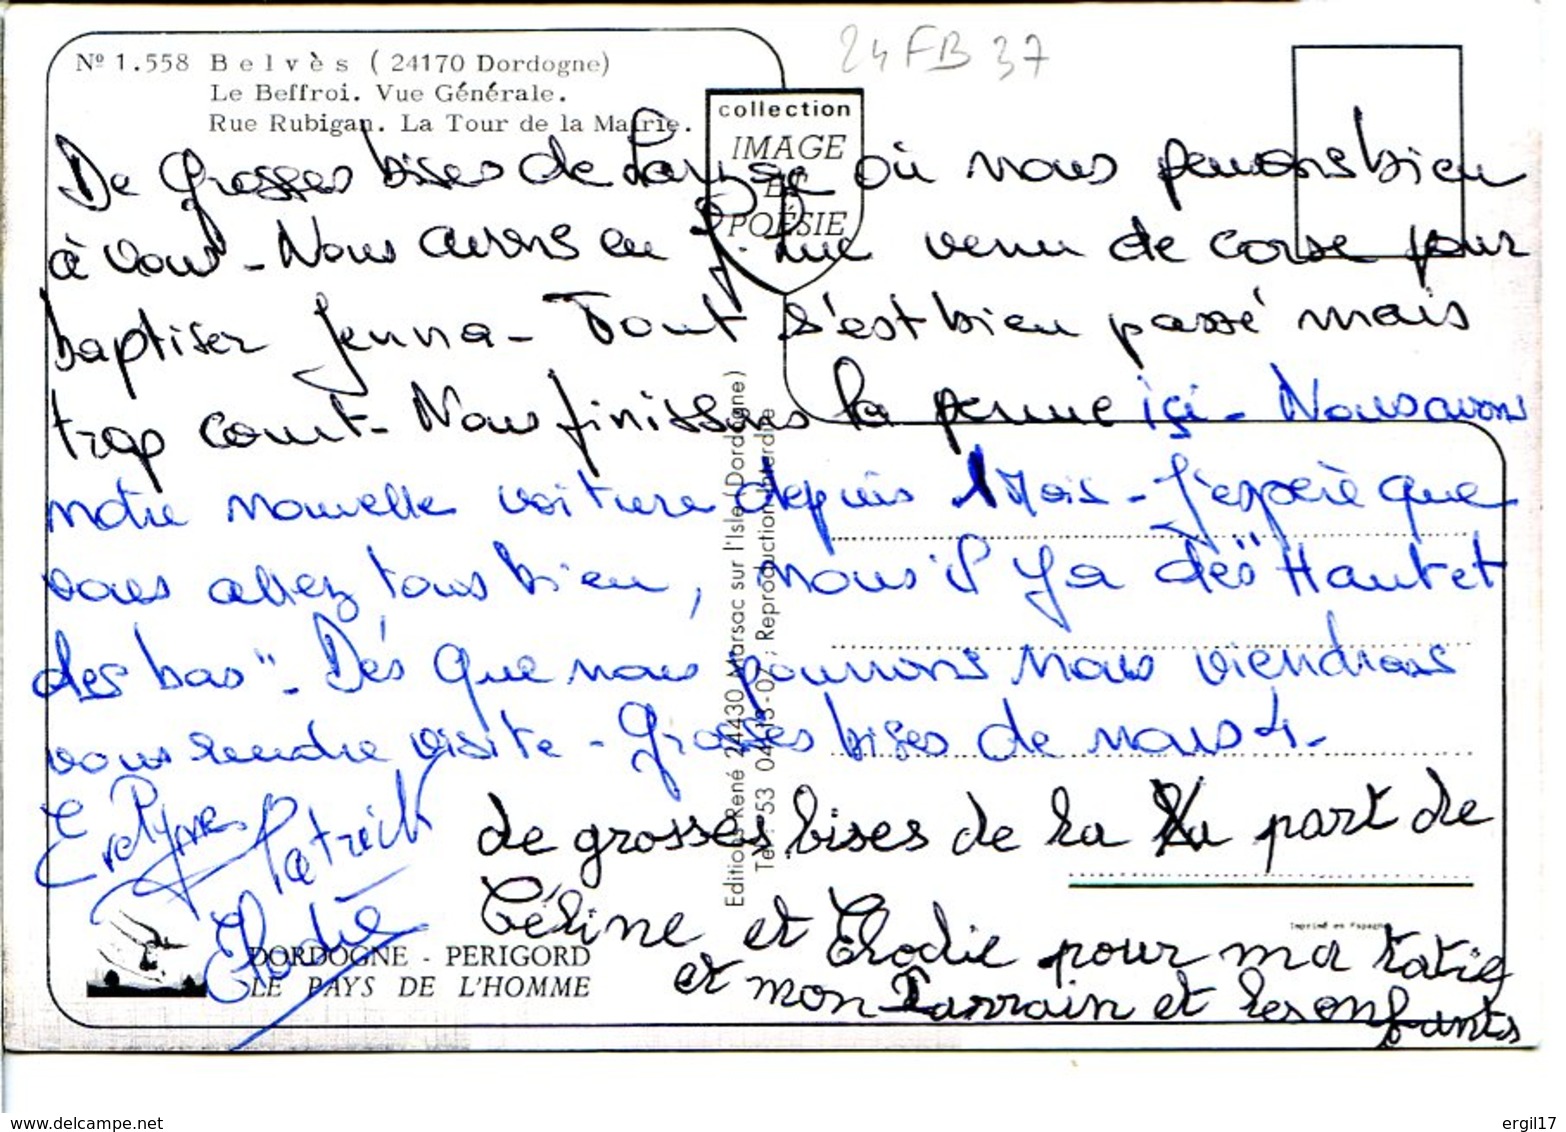 24 FB 37
Nº 1.558 Belvès (24170 Dordogne)
Le Beffroi. Vue Générale.
Rue Rubigan. La Tour de la Mairie.
collection
IMAGE
ET
POÉSIE
De grosses bises de où nous pensons bien
à vous - Nous avons eu J. Luc venu de corse pour
baptiser Jenna - Tout s'est bien passé mais
trop court - Nous finissons la perme ici - Nous avons
notre nouvelle voiture depuis 1 Mois - J'espère que
vous allez tous bien, nous il y a des "Haut et
des bas" - Dés que nous pourrons nous viendrons
vous rendre visite - Grosses bises de nous 4 -
Evelyne Patrick
Elodie
de grosses bises de la part de
Céline et Elodie pour ma tatie
et mon Parrain et les enfants
Editions René 24430 Marsac sur l'Isle (Dordogne)
Reproduction interdite
Imprimé en Espagne
DORDOGNE - PERIGORD
LE PAYS DE L'HOMME
delcampe.net
ergil17